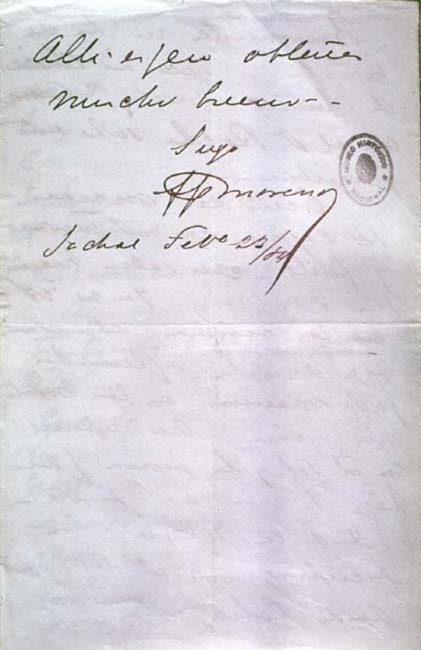 Alli espero obtener
mucho bueno—
Suyo
F P Moreno
Jachal Feb° 23/84
MUSEO HISTÓRICO NACIONAL